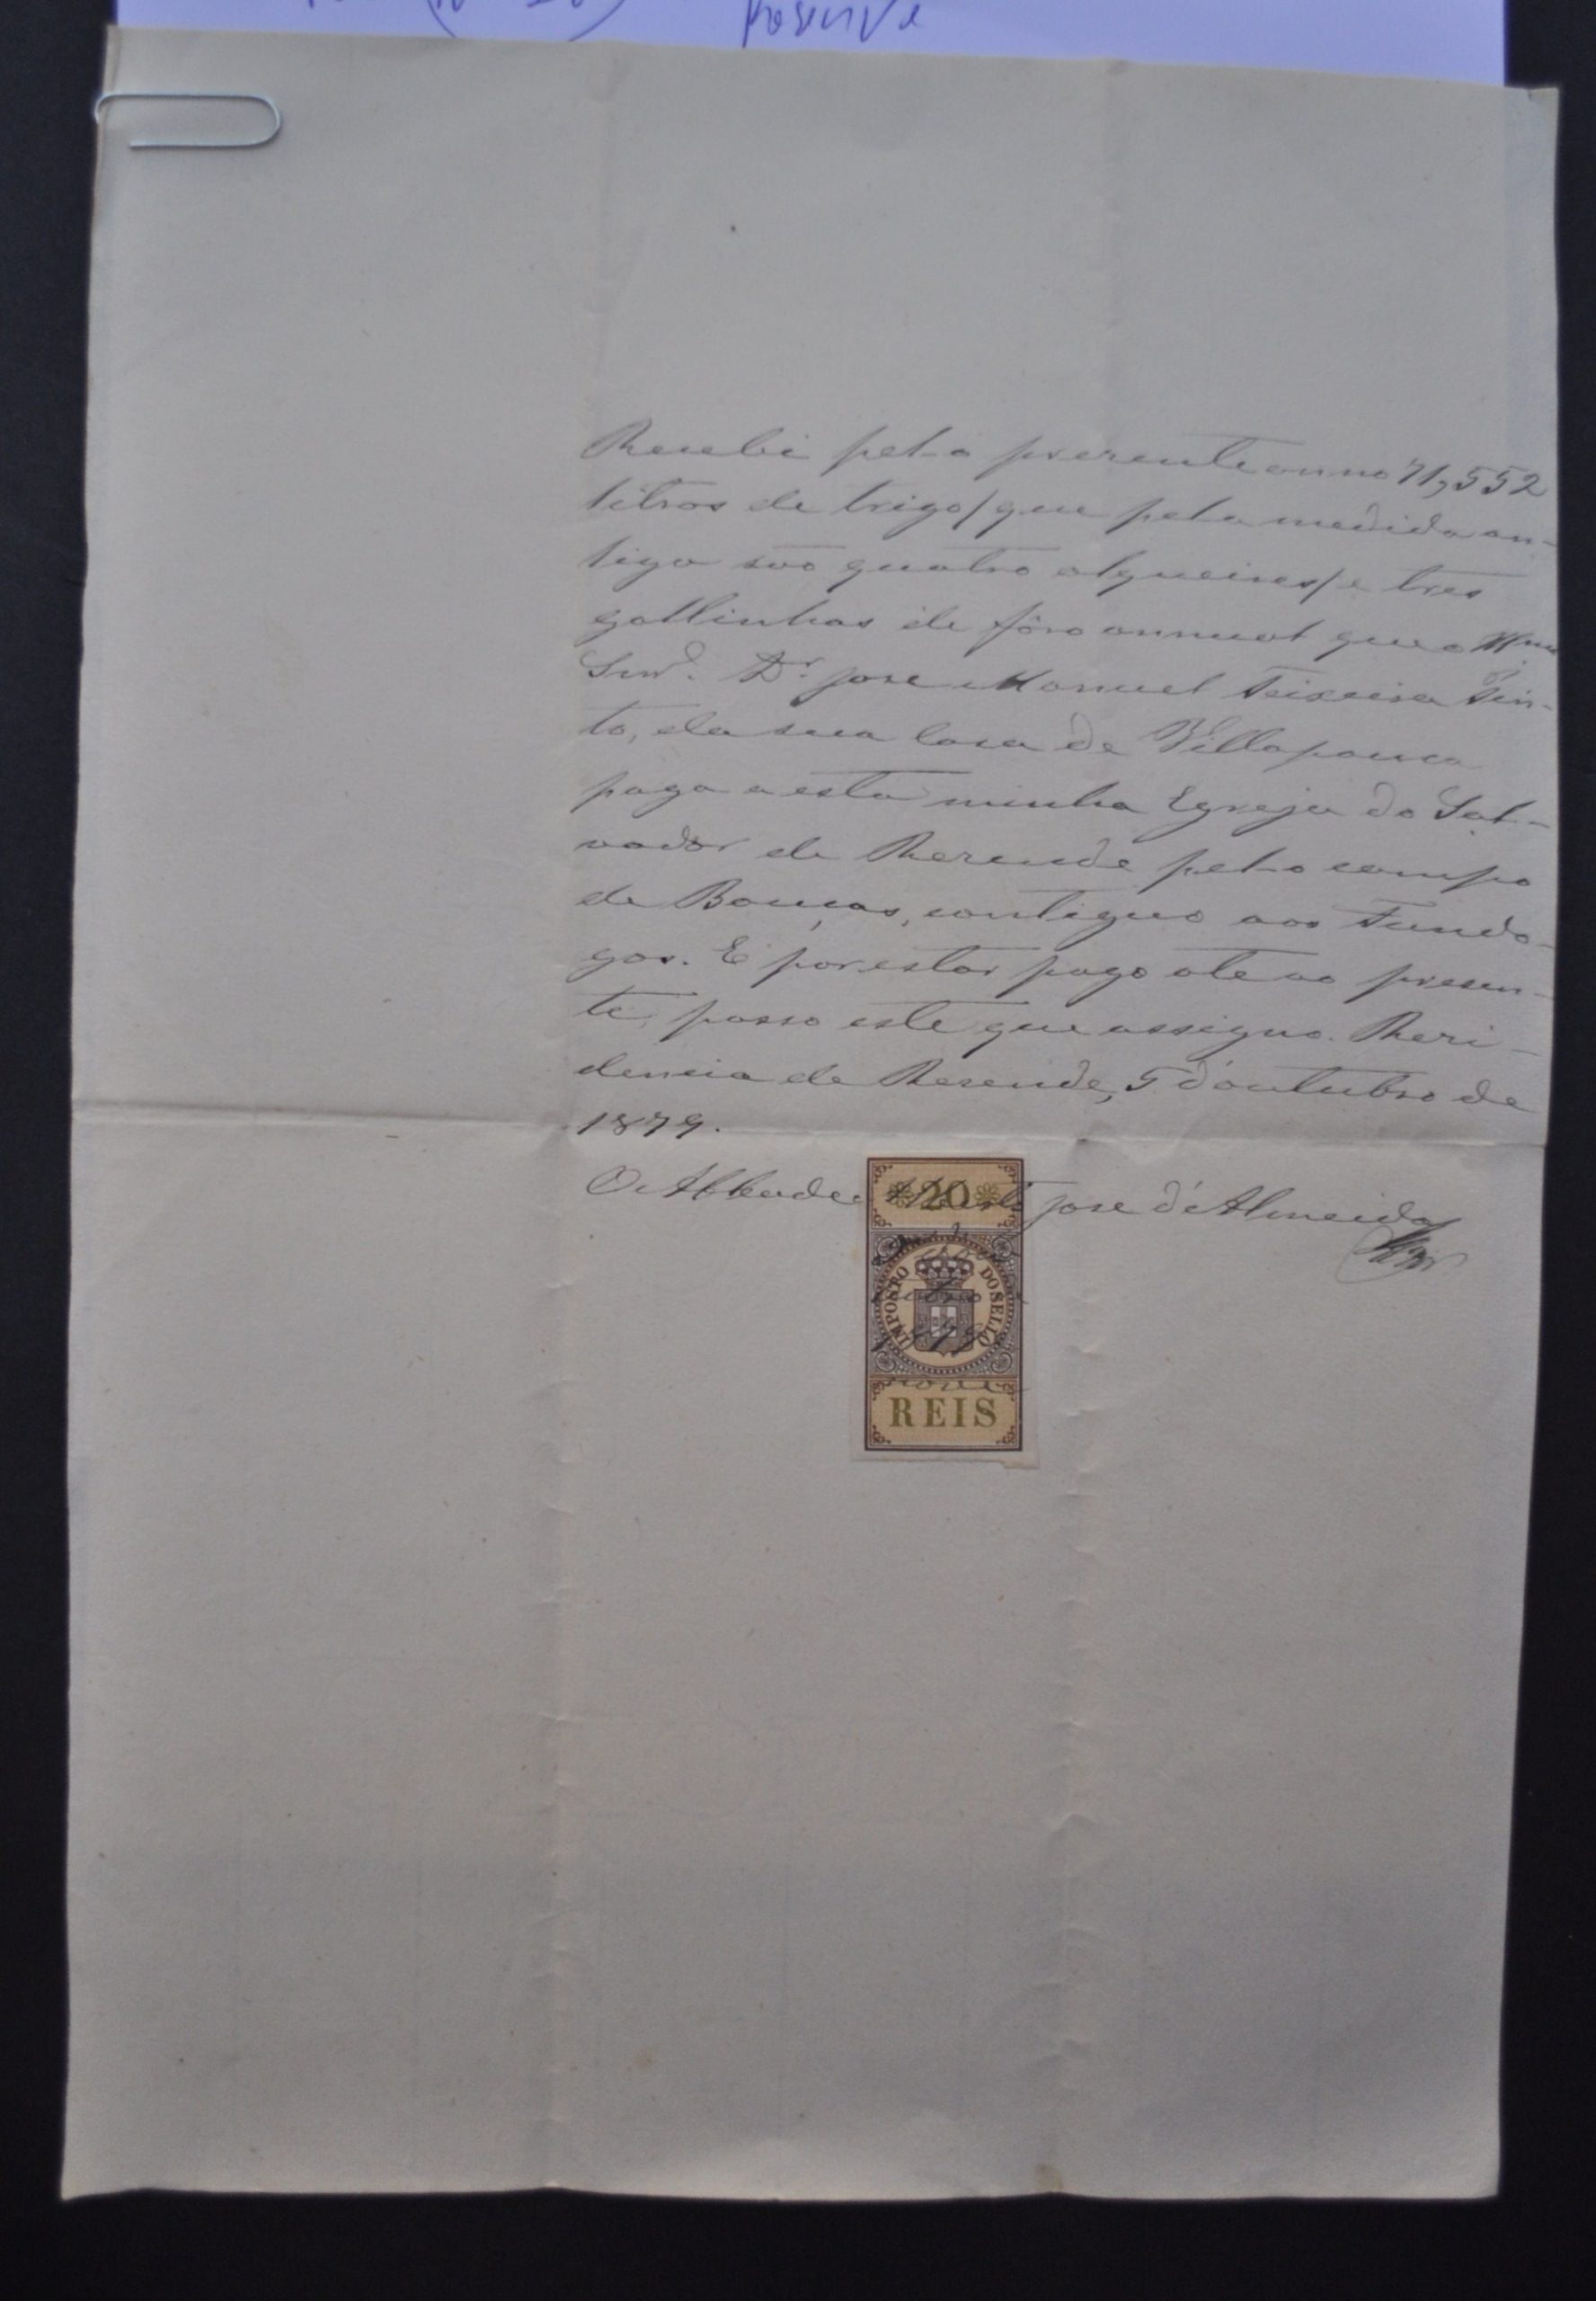 Resende
Recebi pelo presente anno 71,552
litros de trigo/que pela medida an-
tiga são quatro alqueires/e tres
gallinhas de fôro annual que o Illmo
Snr. Dr. José Manuel Teixeira Pin-
to, da sua Casa de Villapouca
paga a esta minha Egreja do Sal-
vador de Resende pelo campo
de Bouças, contiguo aos
E por estar pago até ao presen-
te, passo este que assigno. Resi-
dencia de Resende, 5 d'outubro de
1879.
O Abbade José d'Almeida
20
IMPOSTO DO SELLO
REIS